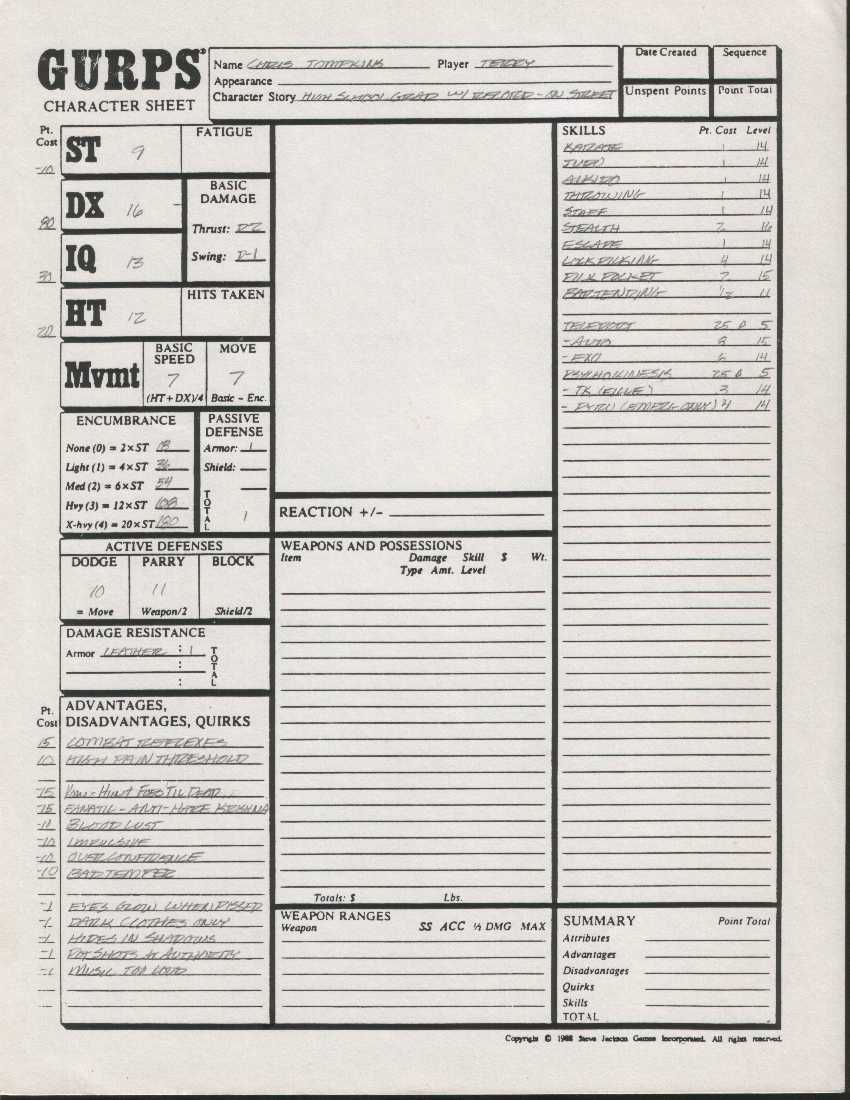 GURPS®
CHARACTER SHEET
Name CHRIS TOMPKINS Player TERRY
Appearance
Character Story HIGH SCHOOL GRAD W/ RECORD - ON STREET
Date Created
Sequence
Unspent Points
Point Total
Pt. Cost
-10 ST 9
FATIGUE
80 DX 16
BASIC DAMAGE
Thrust: D-2
Swing: D-1
30 IQ 13
20 HT 12
HITS TAKEN
Mvmt
BASIC SPEED
7
(HT+DX)/4
MOVE
7
Basic - Enc.
ENCUMBRANCE
None (0) = 2×ST 18
Light (1) = 4×ST 36
Med (2) = 6×ST 54
Hvy (3) = 12×ST 108
X-hvy (4) = 20×ST 180
PASSIVE DEFENSE
Armor: 1
Shield:
TOTAL 1
ACTIVE DEFENSES
DODGE PARRY BLOCK
10 11
= Move Weapon/2 Shield/2
DAMAGE RESISTANCE
Armor LEATHER : 1
:
:
TOTAL
Pt. Cost
ADVANTAGES, DISADVANTAGES, QUIRKS
15 COMBAT REFLEXES
10 HIGH PAIN THRESHOLD
-15 VOW - HUNT FOES TIL DEAD
-15 FANATIC - ANTI-HARE KRISHNA
BLOOD LUST
-10 IMPULSIVE
-10 OVERCONFIDENCE
-10 BAD TEMPER
-1 EYES GLOW WHEN PISSED
-1 DARK CLOTHES ONLY
-1 HIDES IN SHADOWS
-1 POT SHOTS AT AUTHORITY
-1 MUSIC TOO LOUD
REACTION +/-
WEAPONS AND POSSESSIONS
Item Damage Skill $ Wt.
Type Amt. Level
Totals: $ Lbs.
WEAPON RANGES
Weapon SS ACC ½ DMG MAX
SKILLS Pt. Cost Level
KARATE 1 14
JUDO 1 14
AIKIDO 1 14
THROWING 1 14
STAFF 1 14
STEALTH 2 16
ESCAPE 1 14
LOCK PICKING 4 14
PICK POCKET 2 15
BARTENDING ½ 11
TELEPORT 25 5
- AUTO 8 15
- EXO 6 14
PSYCHOKINESIS 25 5
- TK 3 14
- PYRO (EMERG ONLY) 4 14
SUMMARY Point Total
Attributes
Advantages
Disadvantages
Quirks
Skills
TOTAL
Copyright © 1988 Steve Jackson Games Incorporated. All rights reserved.